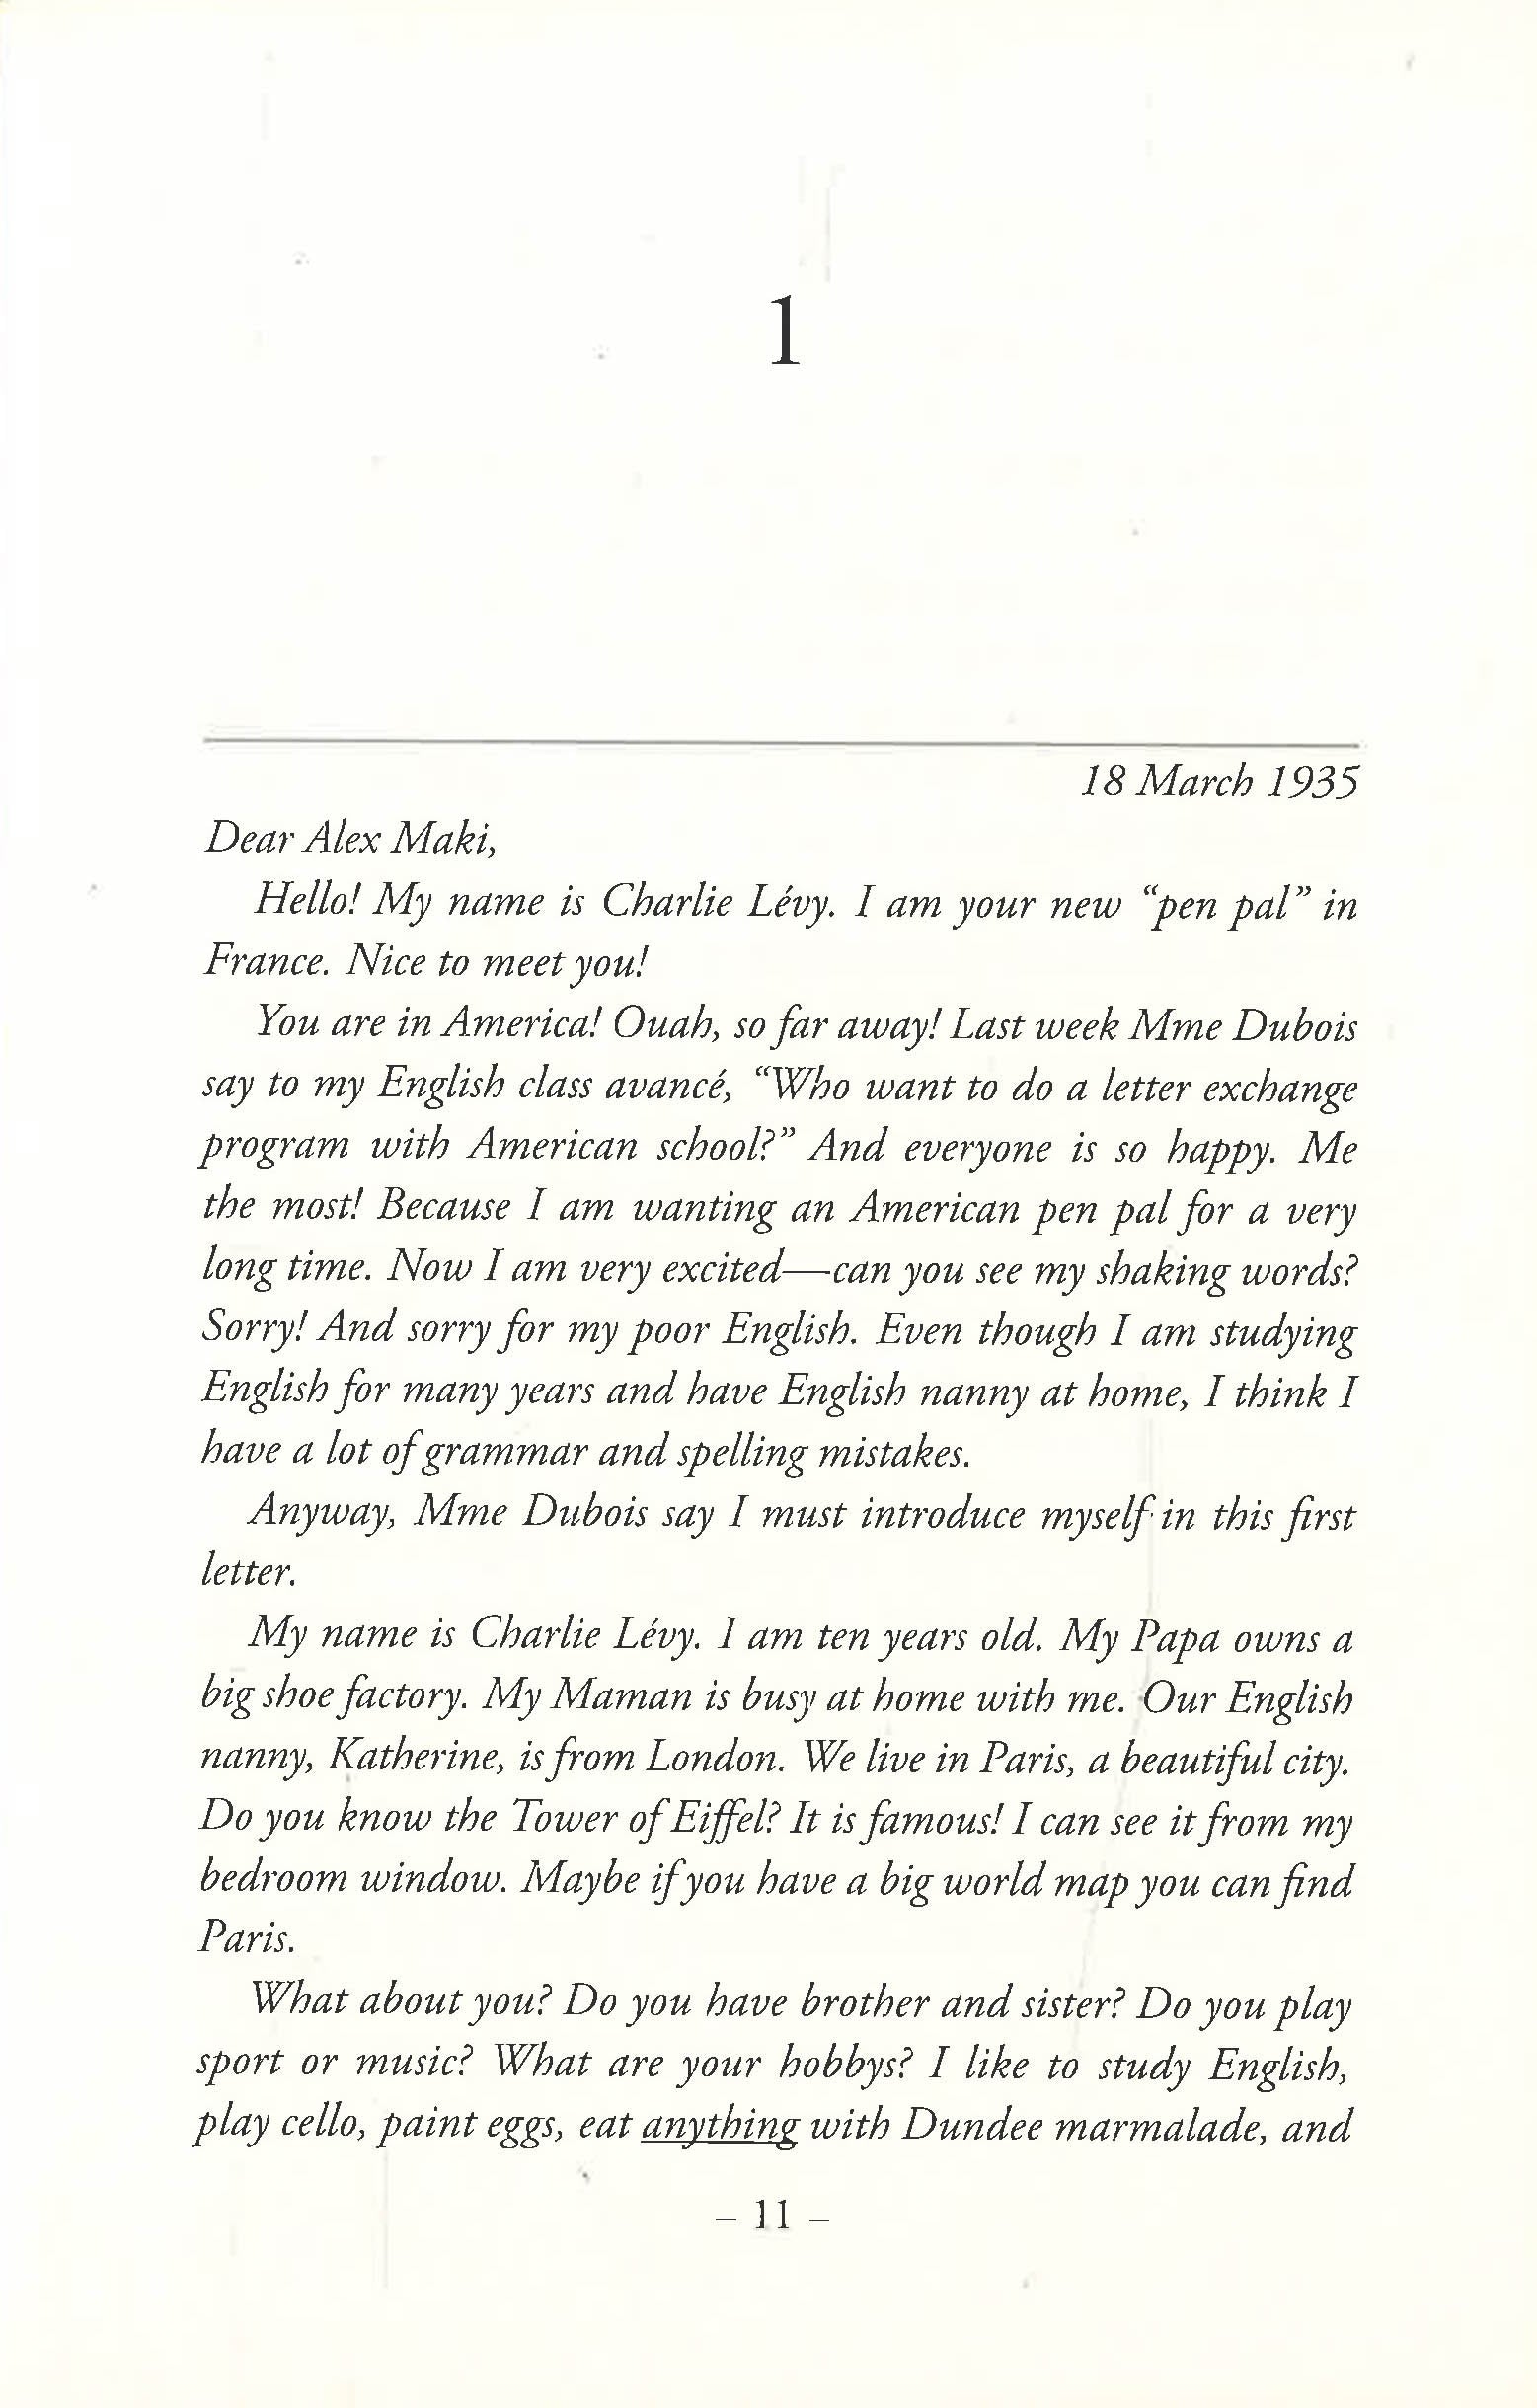 1
18 March 1935
Dear Alex Maki,
Hello! My name is Charlie Lévy. I am your new “pen pal” in
France. Nice to meet you!
You are in America! Ouah, so far away! Last week Mme Dubois
say to my English class avancé, “Who want to do a letter exchange
program with American school?” And everyone is so happy. Me
the most! Because I am wanting an American pen pal for a very
long time. Now I am very excited—can you see my shaking words?
Sorry! And sorry for my poor English. Even though I am studying
English for many years and have English nanny at home, I think I
have a lot of grammar and spelling mistakes.
Anyway, Mme Dubois say I must introduce myself in this first
letter.
My name is Charlie Lévy. I am ten years old. My Papa owns a
big shoe factory. My Maman is busy at home with me. Our English
nanny, Katherine, is from London. We live in Paris, a beautiful city.
Do you know the Tower of Eiffel? It is famous! I can see it from my
bedroom window. Maybe if you have a big world map you can find
Paris.
What about you? Do you have brother and sister? Do you play
sport or music? What are your hobbys? I like to study English,
play cello, paint eggs, eat anything with Dundee marmalade, and
– 11 –